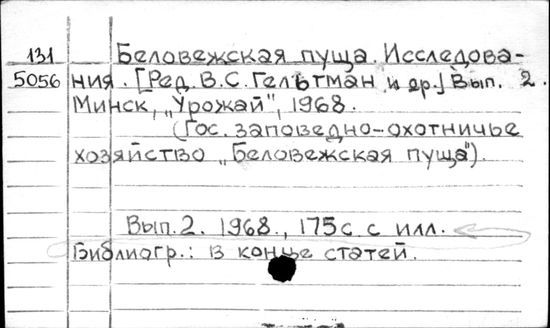 131 Беловежская пуща. Исследова-
5056 ния. [Ред. В.С. Гельтман и др.] Вып. 2.
Минск, „Урожай", 1968.
(Гос. заповедно-охотничье
хозяйство „Беловежская пуща").
Вып. 2. 1968., 175 с с илл.
Библиогр.: в конце статей.